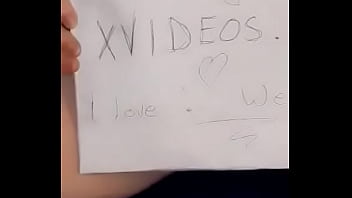 XVIDEOS.
♡
I love : We